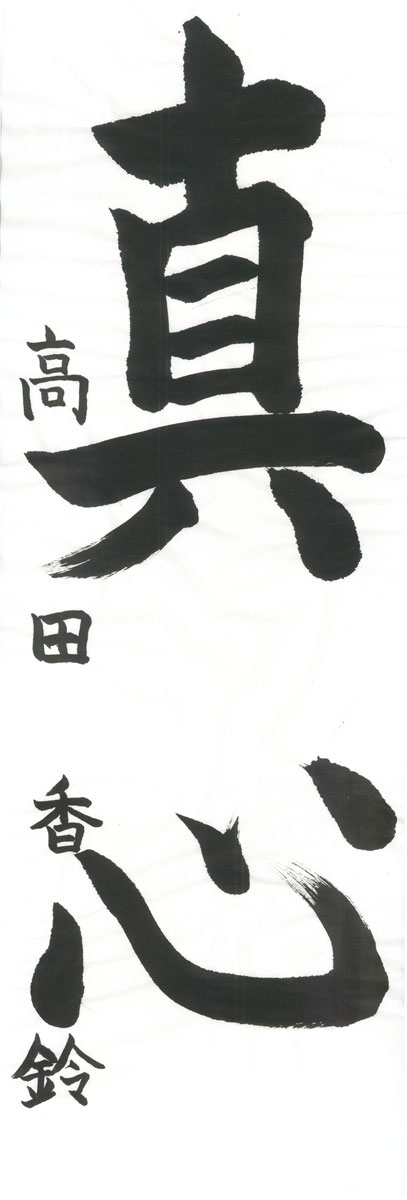 真心
高田香鈴